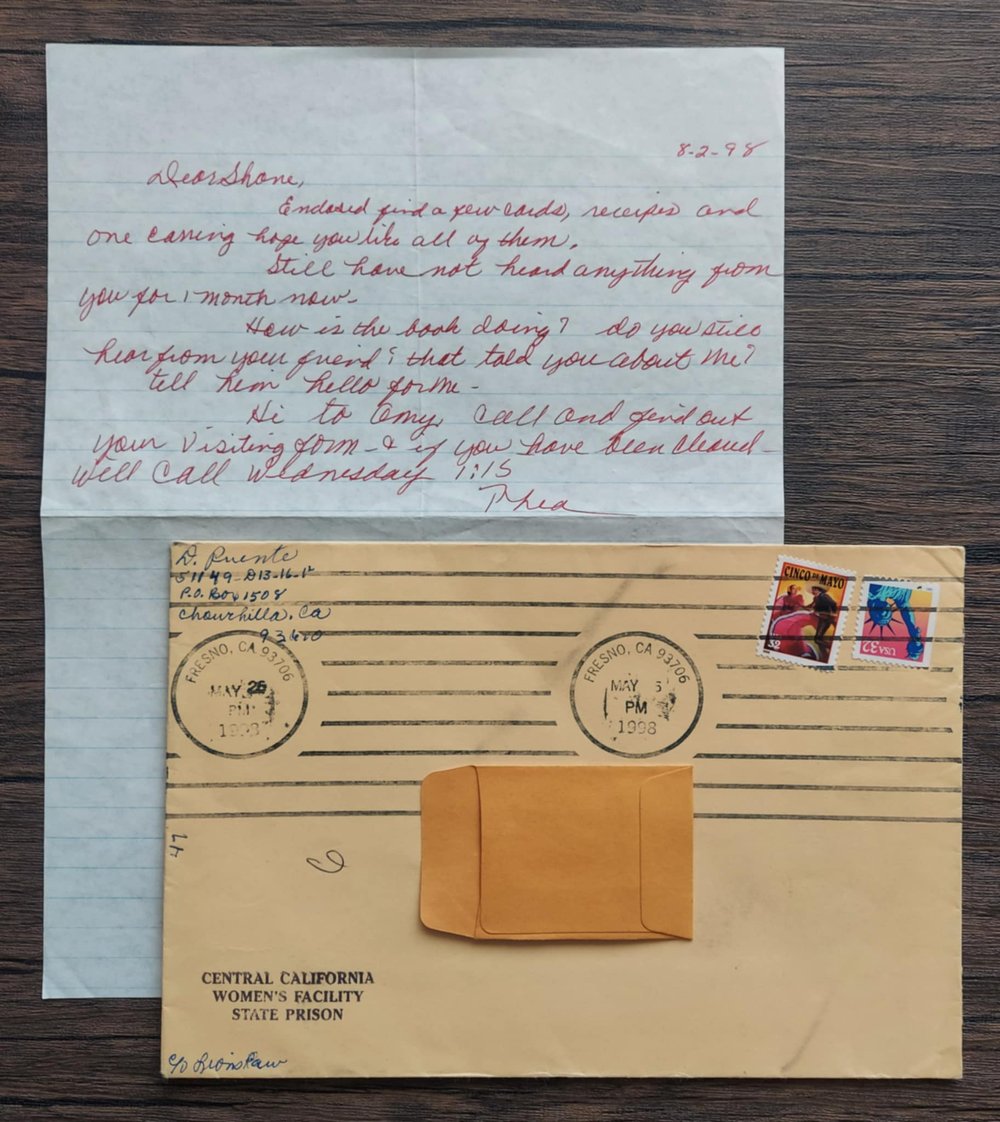 8-2-98
Dear Shane,
Enclosed find a few cards, receipes and
one carring hope you like all of them.
Still have not heard anything from
you for 1 month now-
How is the book doing? do you still
hear from your friend? that told you about me?
tell him hello for me-
Hi to Amy, Call and find out
your Visiting form- & if you have been cleared-
Will Call Wednesday 1:15
Thea
D. Puente
P.O. Box 1508
Chowchilla, Ca
93610
FRESNO, CA 93706
MAY 26
PM
1998
FRESNO, CA 93706
MAY 5
PM
1998
CINCO DE MAYO
32
USA 32
CENTRAL CALIFORNIA
WOMEN'S FACILITY
STATE PRISON
c/o Lionspaw